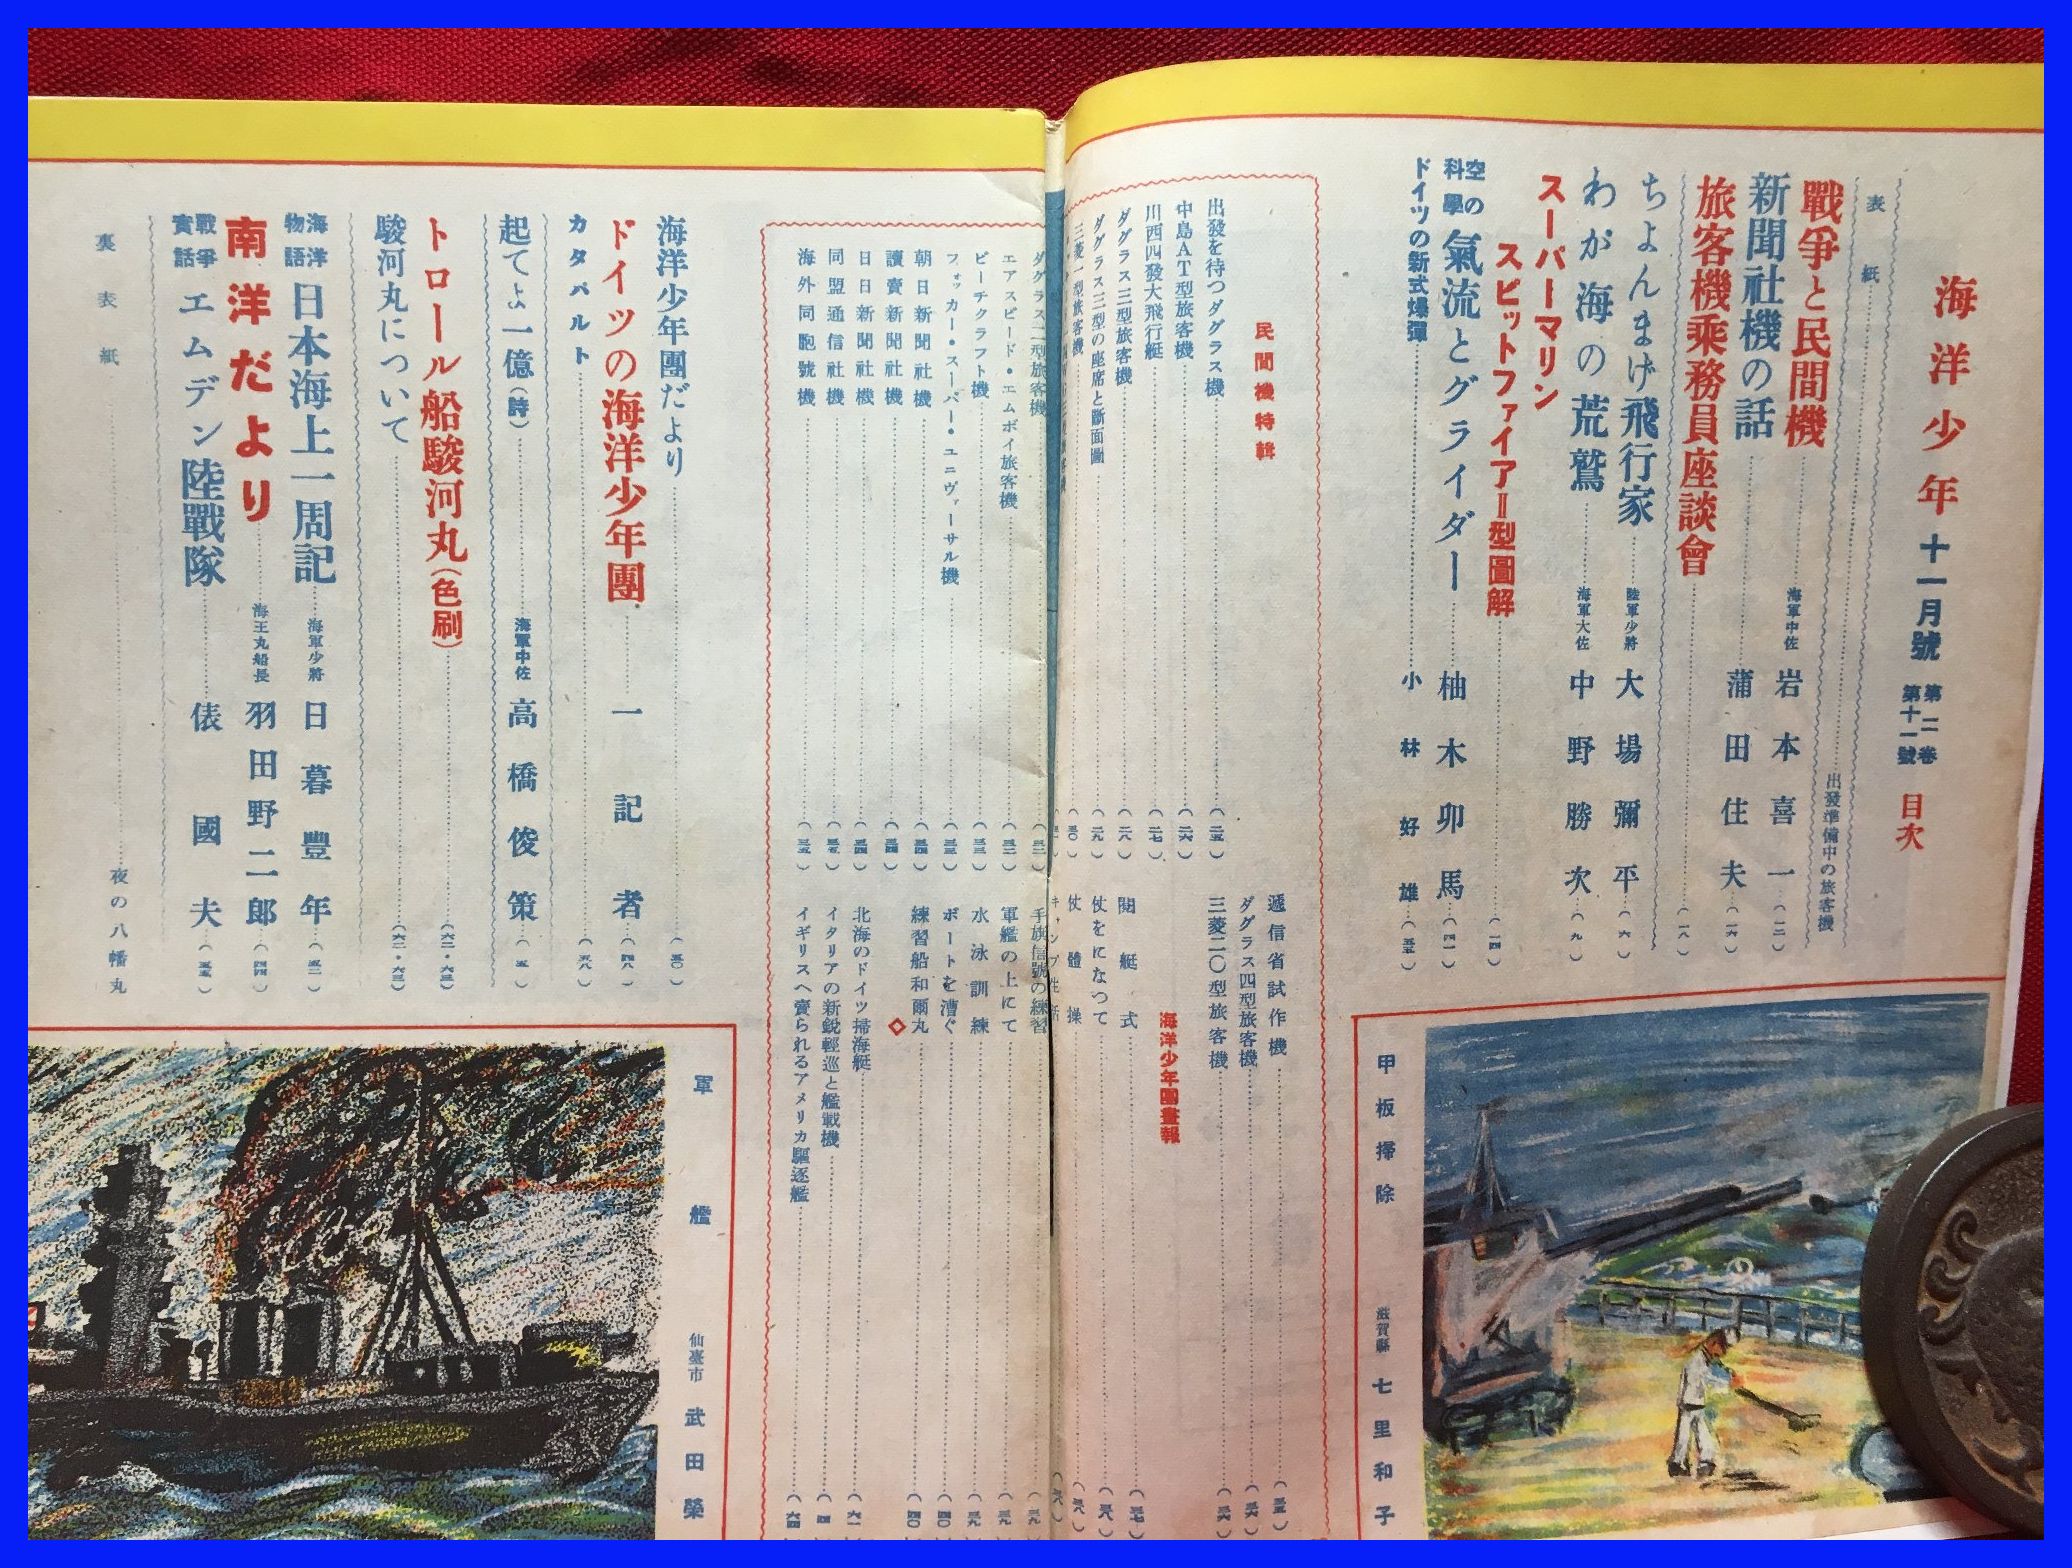 海洋少年 十一月號 第二卷 第十一號 目次
表紙 出發準備中の旅客機
戰爭と民間機 海軍中佐 岩本喜一 (一二)
新聞社機の話 蒲田住夫 (一六)
旅客機乘務員座談會 (一八)
ちよんまげ飛行家 陸軍少將 大場彌平 (六)
わが海の荒鷲 海軍大佐 中野勝次 (九)
スーパーマリン
スピットファイアⅡ型圖解 (一四)
空の科學 氣流とグライダー 柚木卯馬 (四一)
ドイツの新式爆彈 小林好雄 (五五)
民間機特輯
出發を待つダグラス機 (二五)
中島AT型旅客機 (二六)
川西四發大飛行艇 (二七)
ダグラス三型旅客機 (二八)
ダグラス三型の座席と斷面圖 (二九)
三菱一型旅客機 (三〇)
ダグラス二型旅客機 (三二)
エアスピード・エムボイ旅客機 (三二)
ビーチクラフト機 (三三)
フォッカー・スーパー・ユニヴァーサル機 (三三)
朝日新聞社機 (三四)
讀賣新聞社機 (三四)
日日新聞社機 (三四)
同盟通信社機 (三五)
海外同胞號機 (三五)
遞信省試作機 (三五)
ダグラス四型旅客機 (三六)
三菱二〇型旅客機 (三六)
海洋少年團畫報
閱艇式 (三七)
杖をになつて (三八)
杖體操 (三八)
キャンプ生活 (三八)
手旗信號の練習 (三九)
軍艦の上にて (三九)
水泳訓練 (三九)
ボートを漕ぐ (四〇)
練習船和爾丸 (四〇)
◇
北海のドイツ掃海艇 (六一)
イタリアの新銳輕巡と艦載機 (四)
イギリスへ賣られるアメリカ驅逐艦 (六四)
海洋少年團だより (五〇)
ドイツの海洋少年團 一記者 (四八)
カタパルト (五八)
起てよ一億(詩) 海軍中佐 高橋俊策 (五)
トロール船駿河丸(色刷) (六二・六三)
駿河丸について (六二・六三)
海洋物語 日本海上一周記 海軍少將 日暮豐年 (五二)
南洋だより 海王丸船長 羽田野二郎 (四四)
戰爭實話 エムデン陸戰隊 俵國夫 (五五)
裏表紙 夜の八幡丸
甲板掃除 滋賀縣 七里和子
軍艦 仙臺市 武田榮